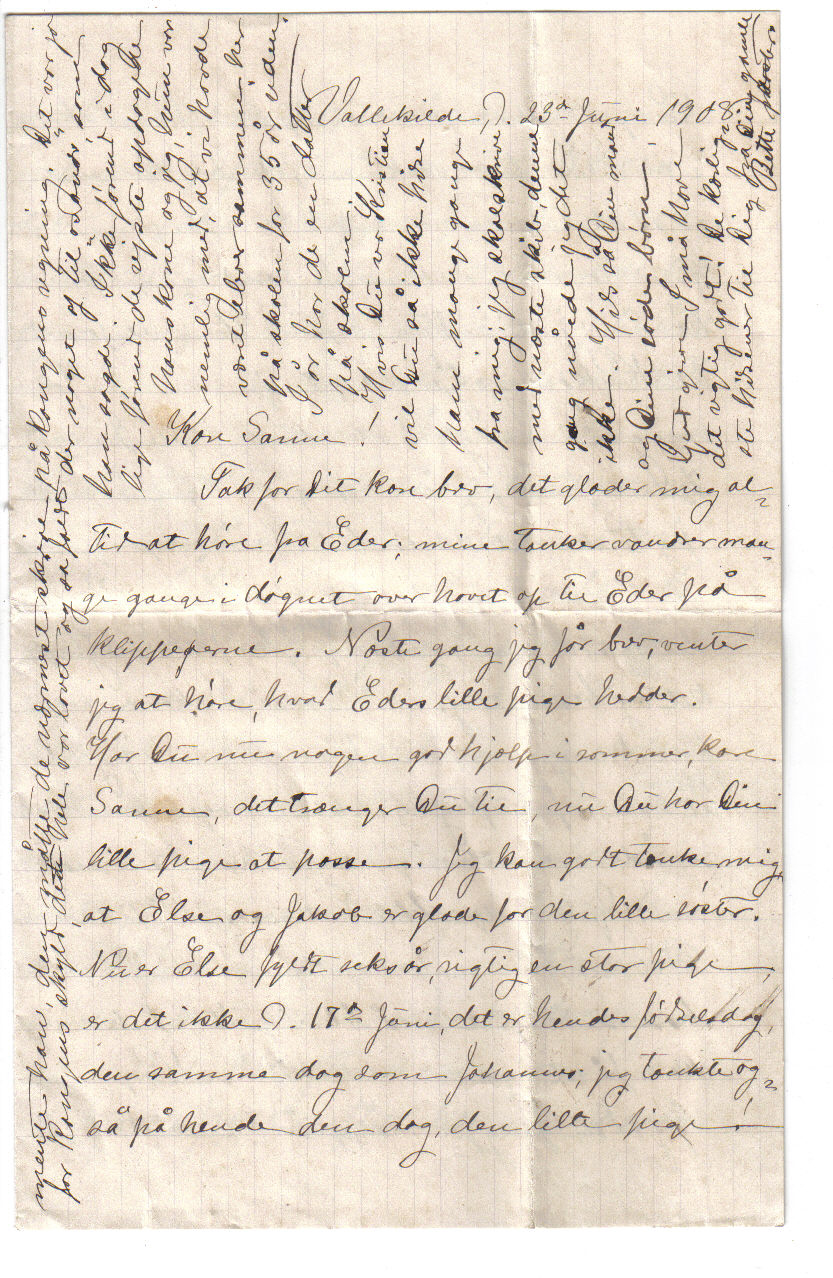 Vallekilde, D. 23de Juni 1908.
Kære Sanne!
Tak for Dit kære brev, det glæder mig al=
tid at høre fra Eder; mine tanker vandrer man=
ge gange i døgnet over havet op til Eder på
klippeøerne. Næste gang jeg får brev, venter
jeg at høre, hvad Eders lille pige hedder.
Har Du nu nogen god hjælp i sommer, kære
Sanne, det trænger Du til, nu Du har Din
lille pige at passe. Jeg kan godt tænke mig
at Else og Jakob er glade for den lille søster.
Nu er Else fyldt seks år, rigtig en stor pige,
er det ikke D. 17de Juni, det er hendes fødselsdag,
den samme dag som Johannes; jeg tænkte og=
så på hende den dag, den lille pige!
mente han, den måtte de nærmest skrive på kongens regning. Det var jo
for Kongens skyld dette hele var lavet og så faldt der noget af til os også som
han sagde. Ikke førend i dag
lige førend de rejste opdagede
hans kone og jeg, hun var
nemlig med, at vi havde
været elever sammen her
på skolen for 35 år siden.
I år har de en datter
på skolen.
Hvis Du ser Kristian
vil Du så ikke hilse
ham mange gange
fra mig; jeg skal skrive
med næste skib, denne
gang nåede jeg det
ikke. Hils så Din mand
og Dine søde børn.
Gud give I må have
det rigtig godt! De kærlig=
ste hilsener til Dig fra Din gamle
Bette Moster.